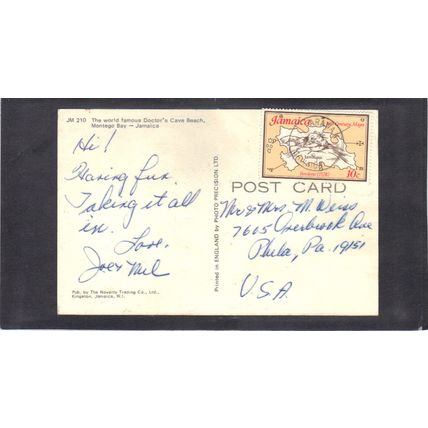 JM 210 The world famous Doctor's Cave Beach,
Montego Bay — Jamaica
Hi!
Having fun.
Taking it all
in.
Love,
Joe & Mel
Pub. by The Novelty Trading Co., Ltd.,
Kingston, Jamaica, W.I.
Printed in ENGLAND by PHOTO PRECISION LTD.
Jamaica
Century Maps
10c
POST CARD
Mr & Mrs. M. Weiss
7605 Overbrook Ave
Phila, Pa. 19151
U.S.A.